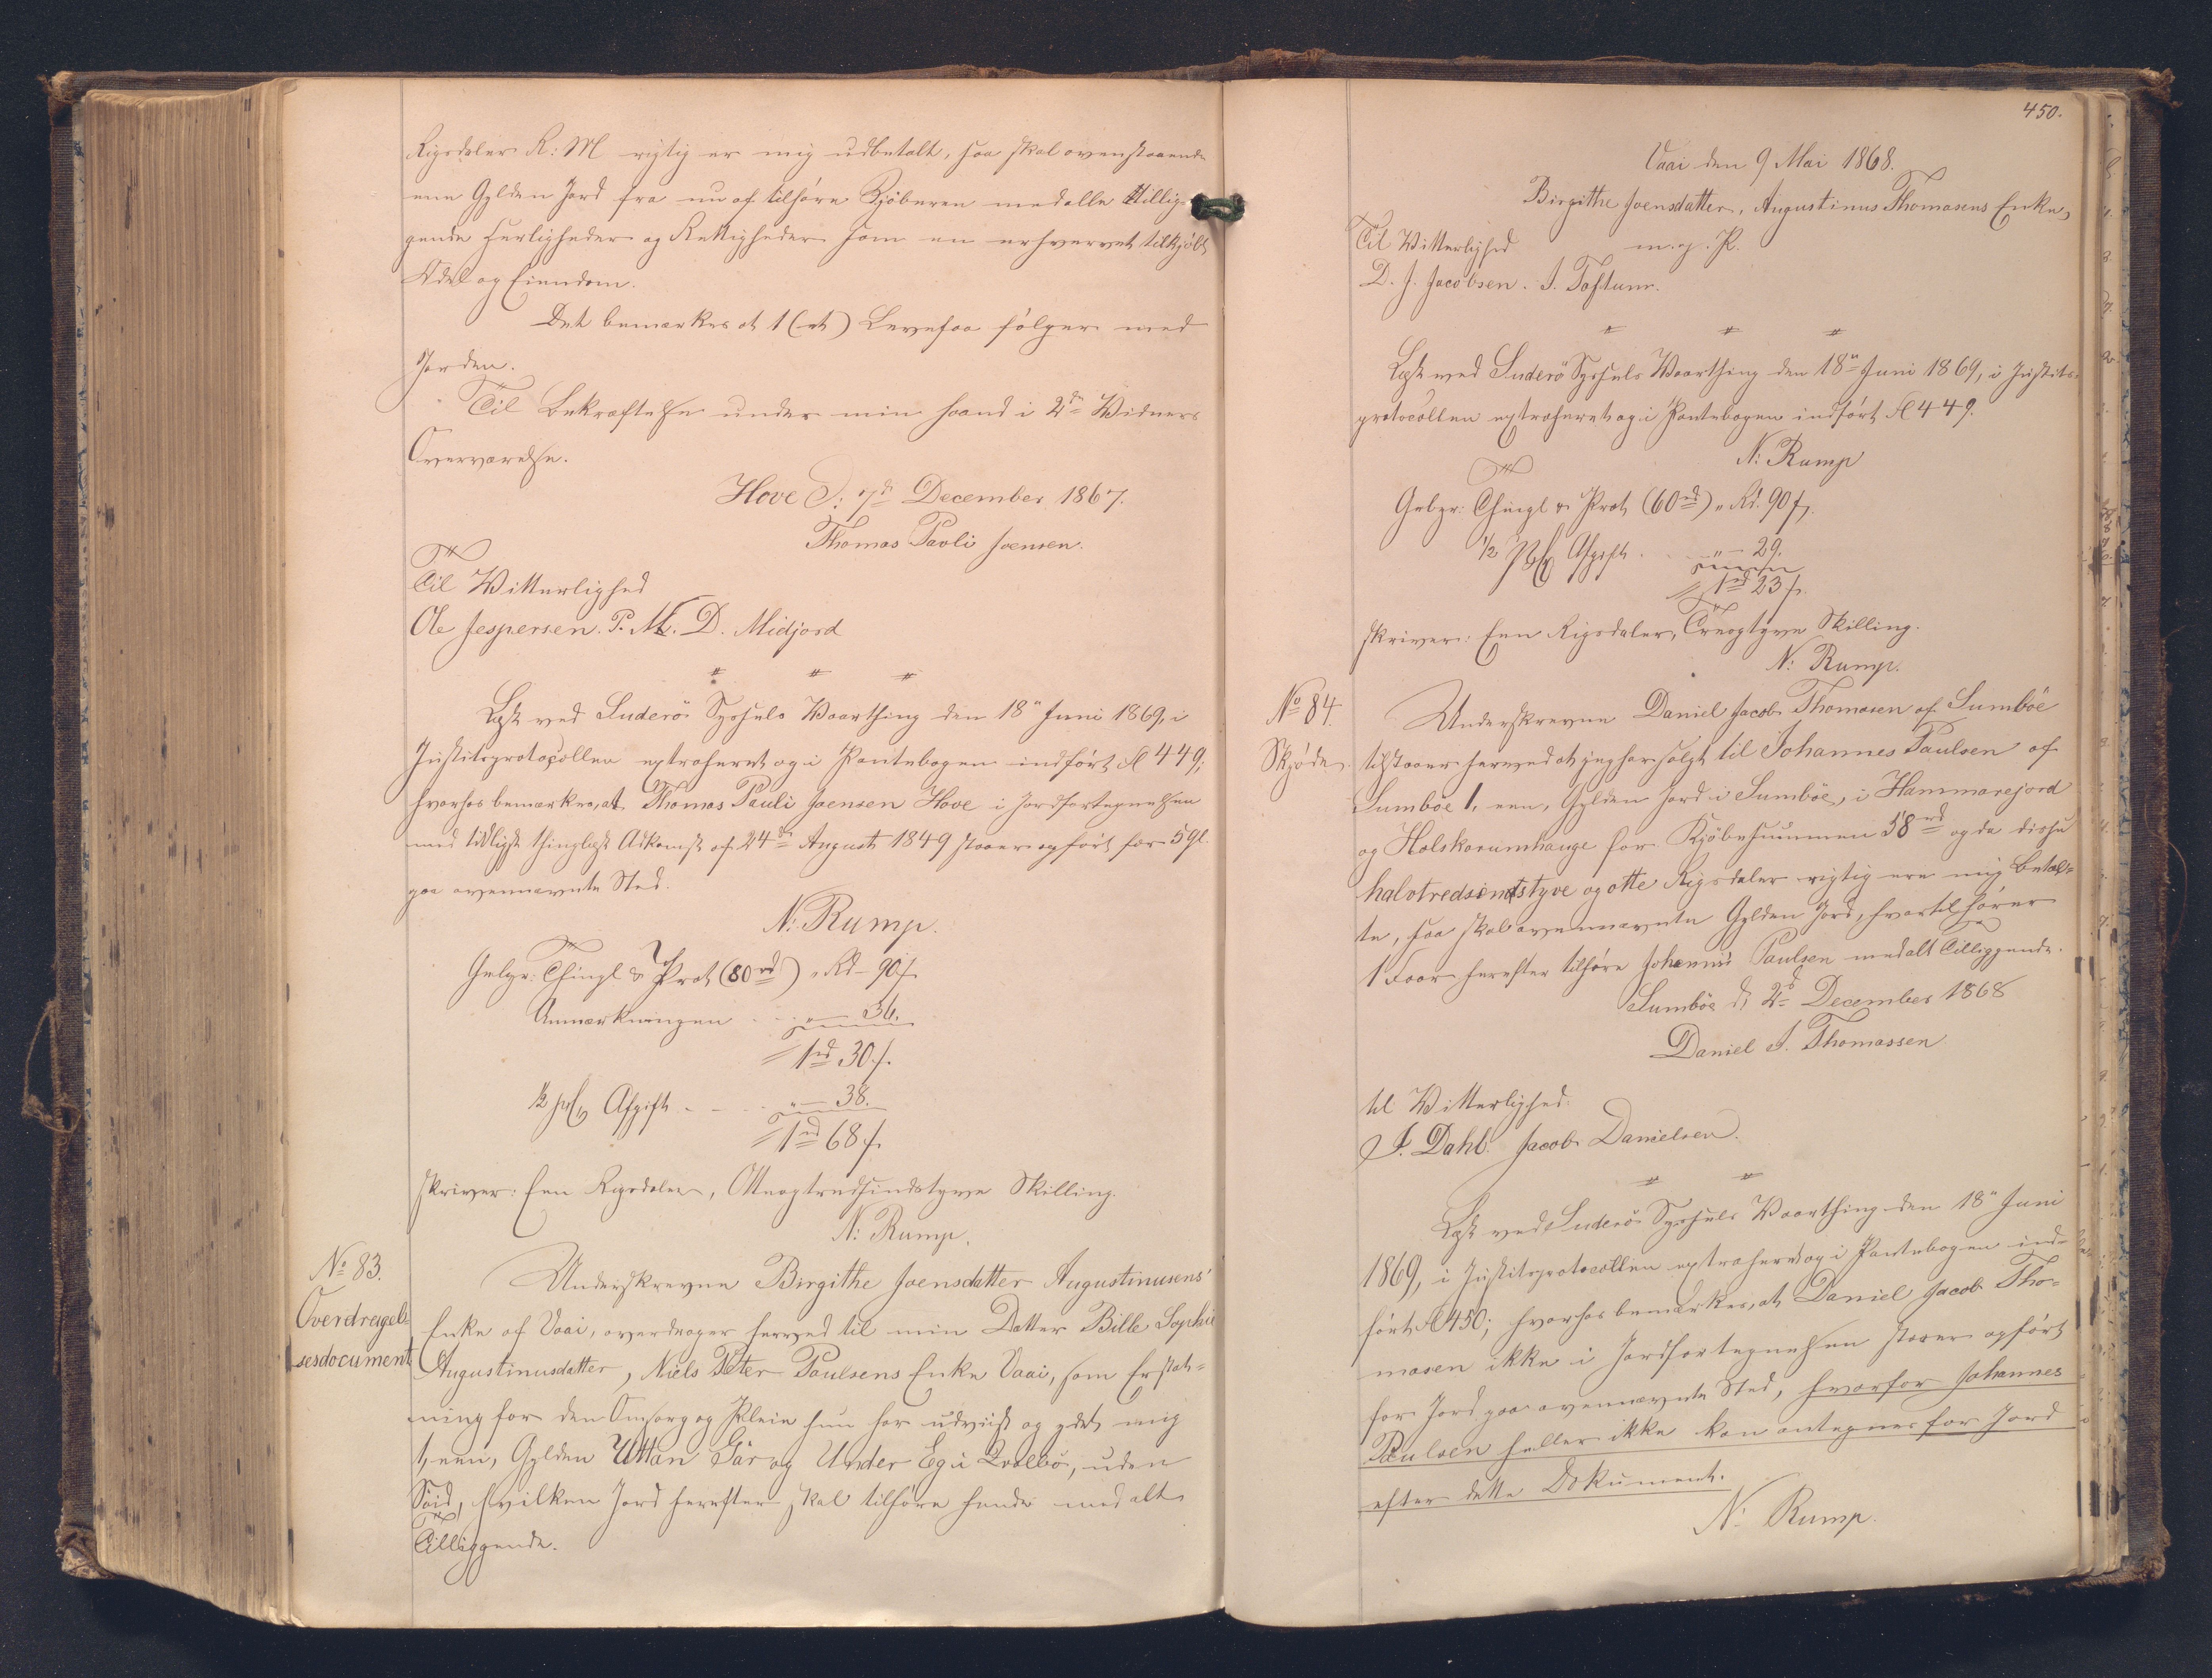 Rigsdaler R: M rigtig er mig udbetalt, saa skal ovenstaaende
een Gylden Jord fra nu af tilhøre Kjøberen med alle tillig-
gende Herligheder og Rettigheder som en erhvervet tilkjøbt
Odel og Eiendom.
Det bemærkes at 1 (et) Levefaa følger med
Jorden.
Til Bekræftelse under min Haand i 2de Vidners
Overværelse.
Hove D: 7de December 1867.
Thomas Pavli Joensen.
Til Vitterlighed
Ole Jespersen. P. M. D. Midjord
Læst ved Suderö Syssels Vaarthing den 18" Juni 1869, i
Justitsprotocollen extraheret og i Pantebogen indført Fol 449;
hvorhos bemærkes, at Thomas Pauli Joensen Hove i Jordfortegnelsen
med tidligst thinglæst Adkomst af 24de August 1849 staaer opført for 5 gl.
paa ovennævnte Sted.
N: Rump.
Gebyr: Thingl & Prot (80 rd) " Rd - 90 f.
Anmærkningen . . . " — 36.
1 rd 30 f.
½ pCt Afgift . . . . " — 38.
1 rd 68 f.
skriver: Een Rigsdaler, Otteogtredsindstyve Skilling.
N: Rump.
No 83.
Overdragel-
sesdocument
Underskrevne Birgithe Joensdatter Augustinusens'
Enke af Vaai, overdrager herved til min Datter Bille Sophie
Augustinusdatter, Niels Peter Paulsens Enke Vaai, som Erstat-
ning for den Omsorg og Pleie hun har udviist og ydet mig
1, een, Gylden Uttan Gär og Under Eg i Qvalbö, uden
Söid, hvilken Jord herefter skal tilhøre hende med alt
Tilliggende.
450.
Vaai den 9 Mai 1868.
Birgithe Joensdatter, Augustinus Thomasens Enke,
m. g. P.
Til Vitterlighed
D. J. Jacobsen. J. Toftum.
Læst ved Suderö Syssels Vaarthing den 18" Juni 1869, i Justits-
protocollen extraheret og i Pantebogen indført Fol 449.
N: Rump
Gebyr: Thingl & Prot (60 rd) " Rd. 90 f.
½ pCt Afgift . . . " — 29.
1 rd 23 f.
skriver: Een Rigsdaler, Treogtyve Skilling.
N: Rump.
No 84.
Skjøde.
Underskrevne Daniel Jacob Thomasen af Sumböe
tilstaaer herved at jeg har solgt til Johannes Paulsen af
Sumböe 1, een, Gylden Jord i Sumböe, i Hammarejord
og Holskorumhauge for Kjøbesummen 58 rd og da disse
halvtredsindstyve og otte Rigsdaler rigtig ere mig betal-
te, saa skal ovennævnte Gylden Jord, hvortil hører
1 Faar herefter tilhøre Johannes Paulsen med alt Tilliggende.
Sumböe d. 2d December 1868
Daniel J. Thomassen
til Vitterlighed:
J. Dahl. Jacob Danielsen.
Læst ved Suderö Syssels Vaarthing den 18" Juni
1869, i Justitsprotocollen extraheret og i Pantebogen ind-
ført Fol 450; hvorhos bemærkes, at Daniel Jacob Tho-
masen ikke i Jordfortegnelsen staaer opført
for Jord paa ovennævnte Sted, hvorfor Johannes
Paulsen heller ikke kan antegnes for Jord
efter dette Dokument.
N: Rump.